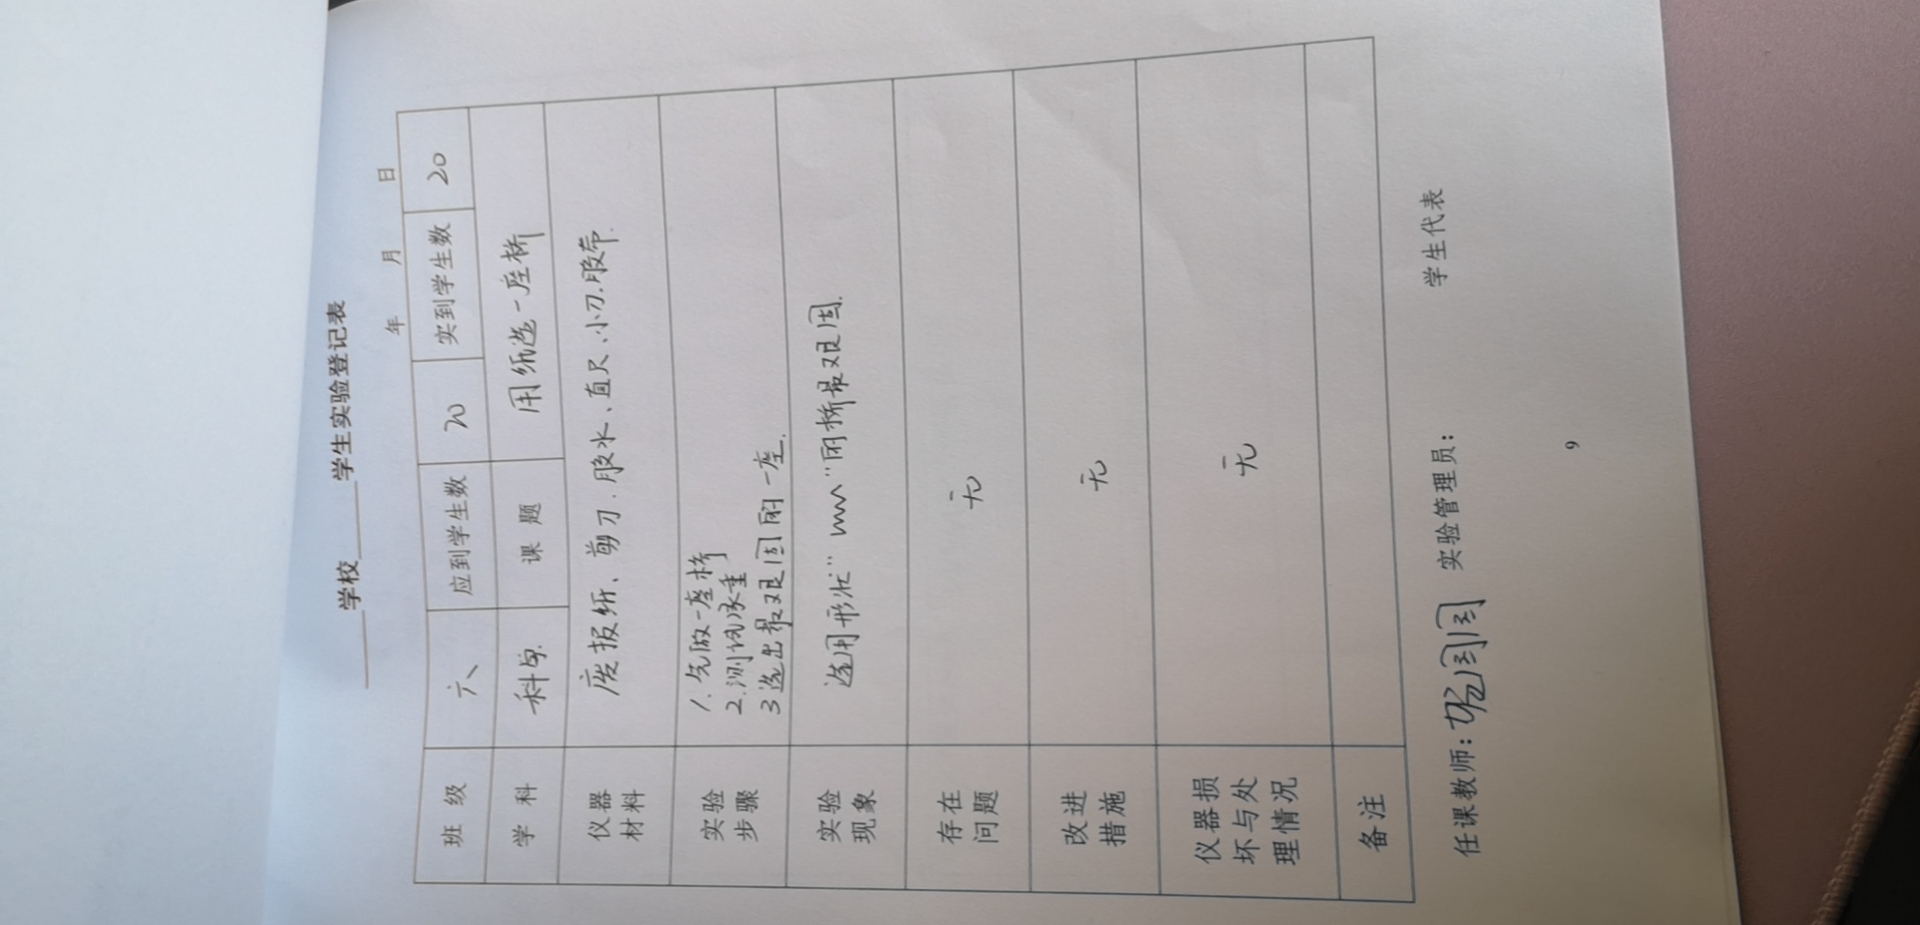 学校 学生实验登记表
年 月 日
班 级 六 应到学生数 20 实到学生数 20
学 科 科学 课 题 用纸造一座桥
仪器材料 废报纸、剪刀、胶水、直尺、小刀、胶带.
实验步骤 1. 先做一座桥
2. 测试承重
3 选出最坚固的一座.
实验现象 选用形状“的桥最坚固.
存在问题 无
改进措施 无
仪器损坏与处理情况 无
备注
任课教师: 实验管理员: 学生代表
9